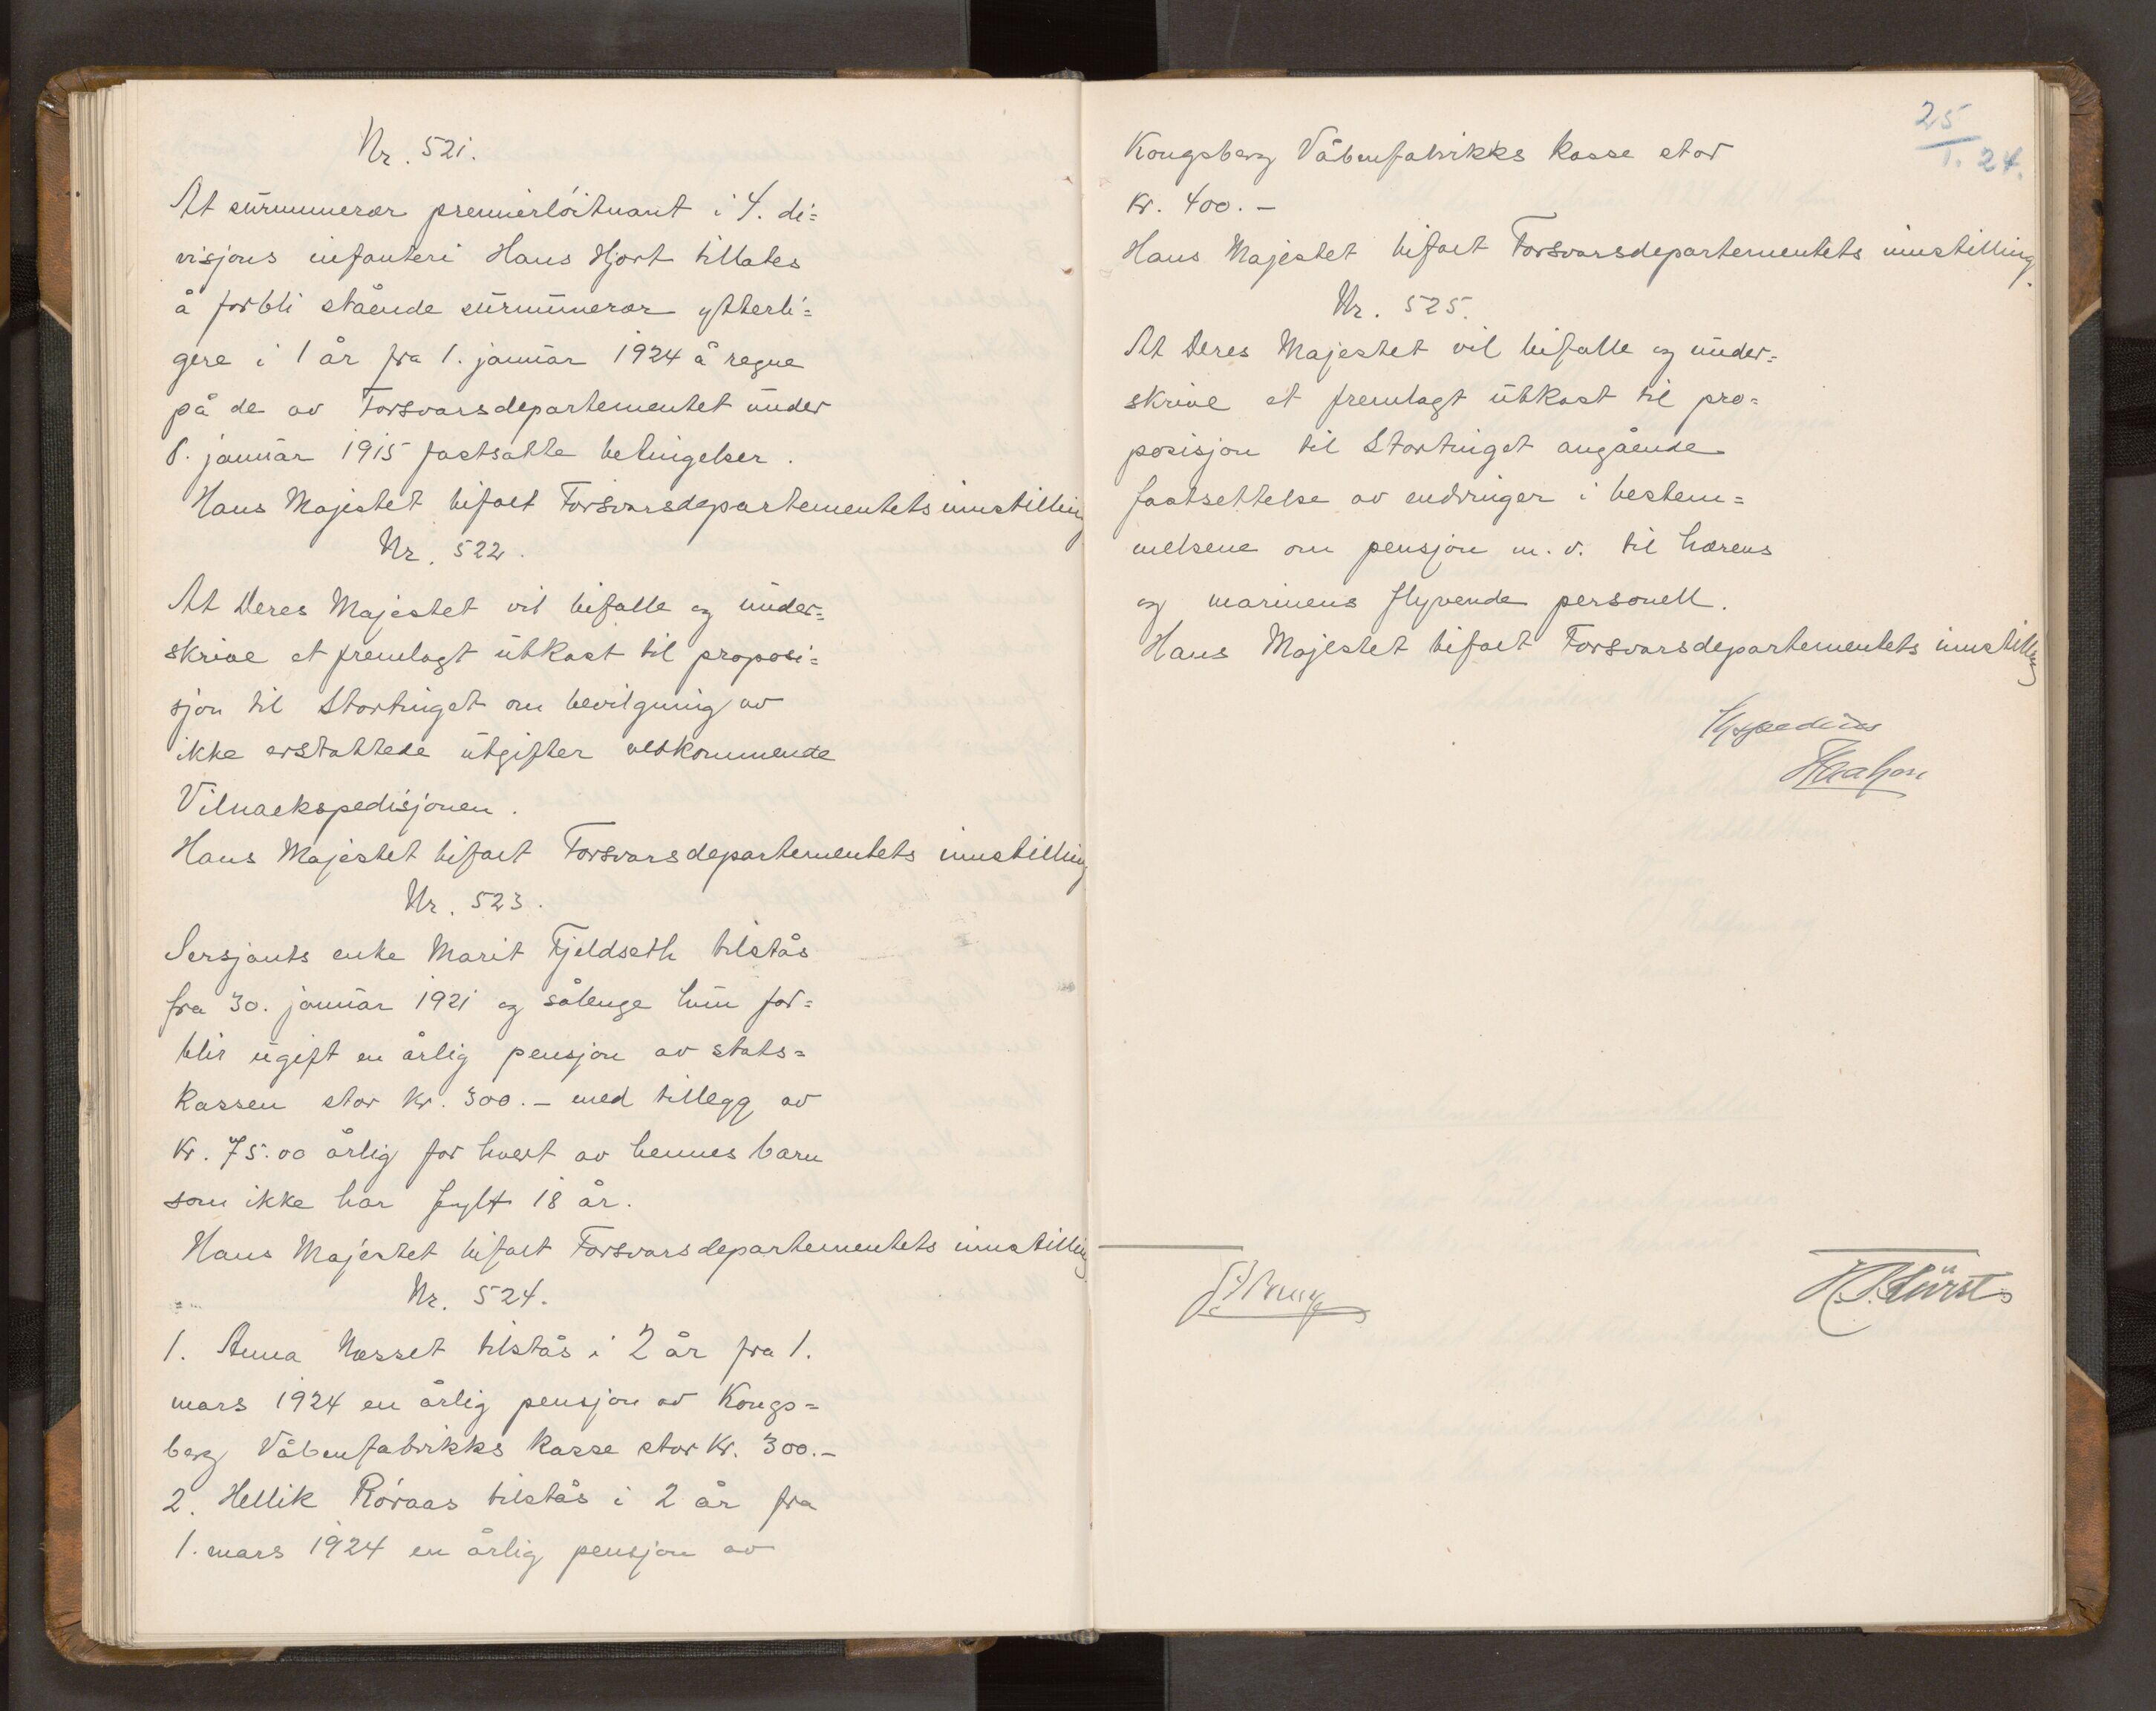 Nr. 521.
At surnumerær premierløitnant i 4. di=
visjons infanteri Hans Hjort tillates
å forbli stående surnumerær ytterli=
gere i 1 år fra 1. januar 1924 å regne
på de av Forsvarsdepartementet under
8. januar 1915 fastsatte betingelser.
Hans Majestet bifalt Forsvarsdepartementets innstilling
Nr. 522.
At Deres Majestet vil bifalle og under=
skrive et fremlagt utkast til proposi=
sjon til Stortinget om bevilgning av
ikke erstattede utgifter vedkommende
Vilnaekspedisjonen.
Hans Majestet bifalt Forsvarsdepartementets innstilling
Nr. 523.
Sersjants enke Marit Fjeldseth tilstås
fra 30. januar 1921 og sålenge hun for=
blir ugift en årlig pensjon av stats=
kassen stor kr. 300.- med tillegg av
kr. 75.00 årlig for hvert av hennes barn
som ikke har fylt 18 år.
Hans Majestet bifalt Forsvarsdepartementets innstilling
Nr. 524.
1. Anna Næsset tilstås i 2 år fra 1.
mars 1924 en årlig pensjon av Kongs=
berg Våbenfabrikks kasse stor kr. 300.-
2. Hellik Róraas tilstås i 2 år fra
1. mars 1924 en årlig pensjon av
25/1. 24.
Kongsberg Våbenfabrikks kasse stor
kr. 400.-
Hans Majestet bifalt Forsvarsdepartementets innstilling.
Nr. 525.
At Deres Majestet vil bifalle og under=
skrive et fremlagt utkast til pro=
posisjon til Stortinget angående
fastsettelse av endringer i bestem=
melsene om pensjon m. v. til hærens
og marinens flyvende personell.
Hans Majestet bifalt Forsvarsdepartementets innstilling
Haakon